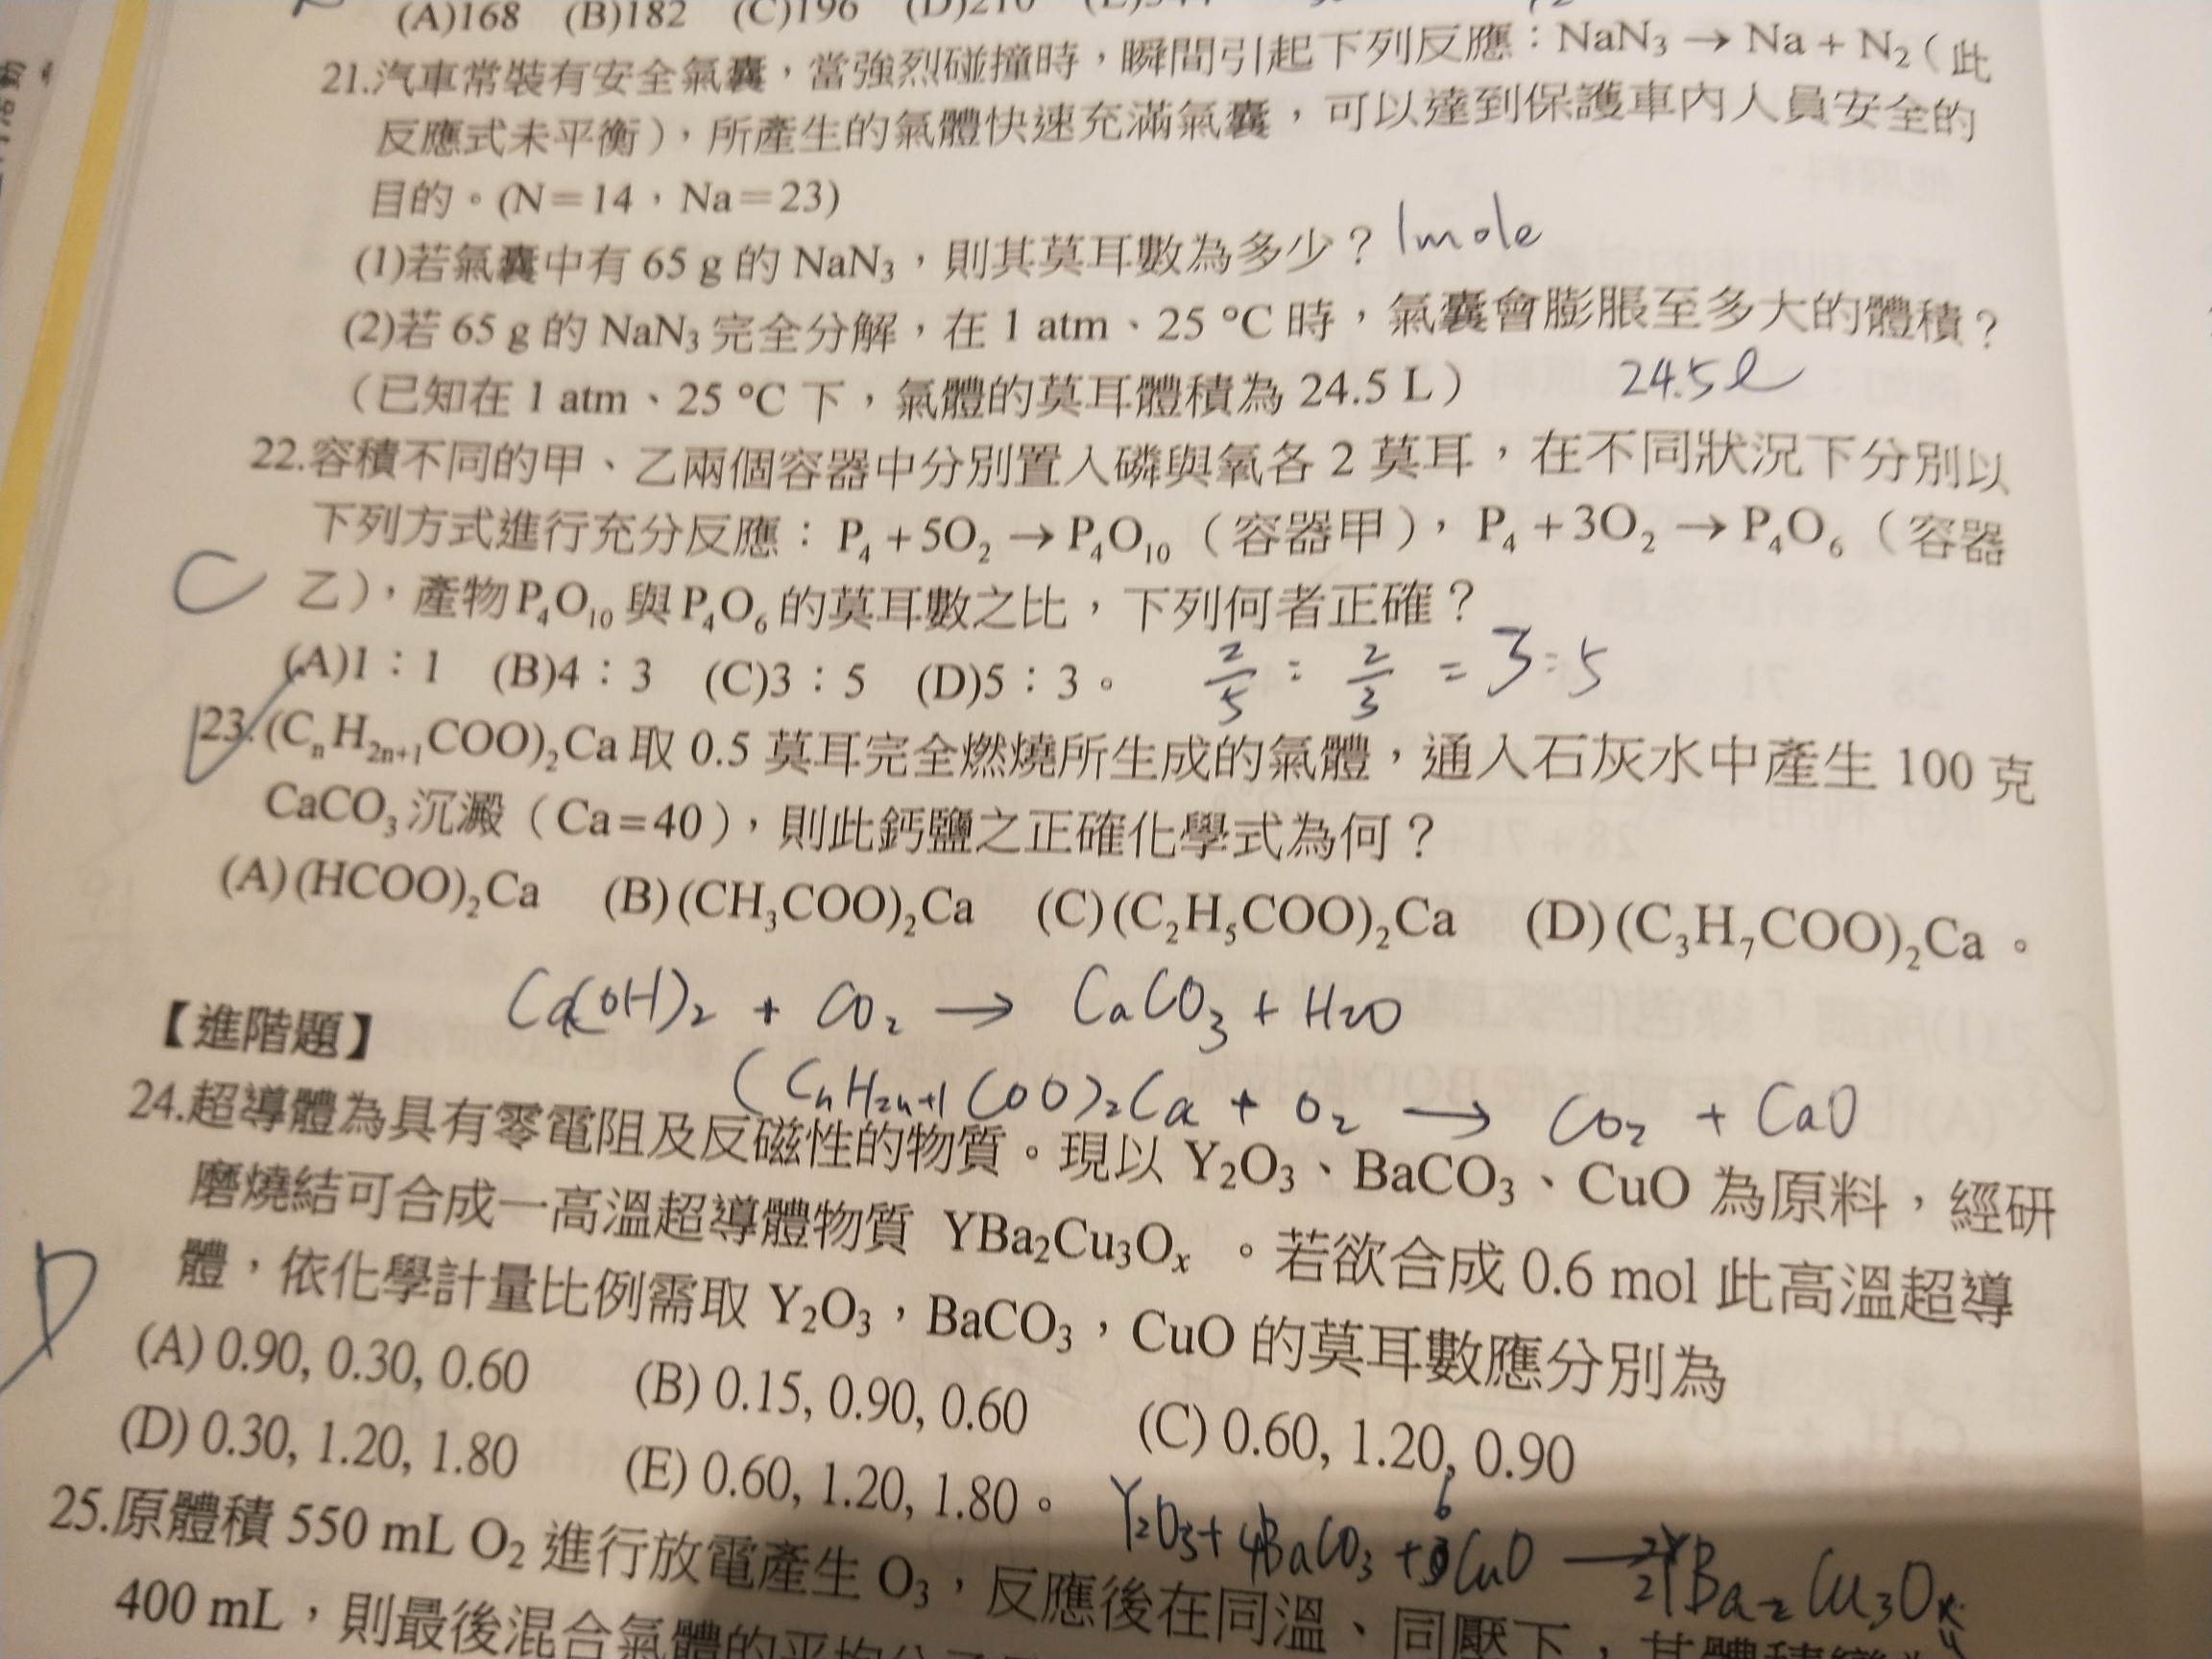 (A)168 (B)182 (C)196 (D)210
21.汽車常裝有安全氣囊，當強烈碰撞時，瞬間引起下列反應：NaN₃ → Na + N₂（此
反應式未平衡），所產生的氣體快速充滿氣囊，可以達到保護車內人員安全的
目的。(N＝14，Na＝23)
(1)若氣囊中有 65 g 的 NaN₃，則其莫耳數為多少？ 1mole
(2)若 65 g 的 NaN₃ 完全分解，在 1 atm、25 °C 時，氣囊會膨脹至多大的體積？
（已知在 1 atm、25 °C 下，氣體的莫耳體積為 24.5 L） 24.5ℓ
22.容積不同的甲、乙兩個容器中分別置入磷與氧各 2 莫耳，在不同狀況下分別以
下列方式進行充分反應：P₄ + 5O₂ → P₄O₁₀（容器甲），P₄ + 3O₂ → P₄O₆（容器
C 乙），產物P₄O₁₀ 與P₄O₆ 的莫耳數之比，下列何者正確？
(A)1：1 (B)4：3 (C)3：5 (D)5：3。 2/5 : 2/3 = 3:5
23.(CₙH₂ₙ₊₁COO)₂Ca 取 0.5 莫耳完全燃燒所生成的氣體，通入石灰水中產生 100 克
CaCO₃ 沉澱（Ca=40），則此鈣鹽之正確化學式為何？
(A)(HCOO)₂Ca (B)(CH₃COO)₂Ca (C)(C₂H₅COO)₂Ca (D)(C₃H₇COO)₂Ca。
Ca(OH)₂ + CO₂ → CaCO₃ + H₂O
【進階題】
(CnH2n+1COO)₂Ca + O₂ → CO₂ + CaO
24.超導體為具有零電阻及反磁性的物質。現以 Y₂O₃、BaCO₃、CuO 為原料，經研
磨燒結可合成一高溫超導體物質 YBa₂Cu₃Oₓ 。若欲合成 0.6 mol 此高溫超導
D 體，依化學計量比例需取 Y₂O₃，BaCO₃，CuO 的莫耳數應分別為
(A) 0.90, 0.30, 0.60 (B) 0.15, 0.90, 0.60 (C) 0.60, 1.20, 0.90
(D) 0.30, 1.20, 1.80 (E) 0.60, 1.20, 1.80。
Y₂O₃ + 4BaCO₃ + 6CuO → 2YBa₂Cu₃Oₓ
25.原體積 550 mL O₂ 進行放電產生 O₃，反應後在同溫、同壓下，其體積變為
400 mL，則最後混合氣體的平均分子